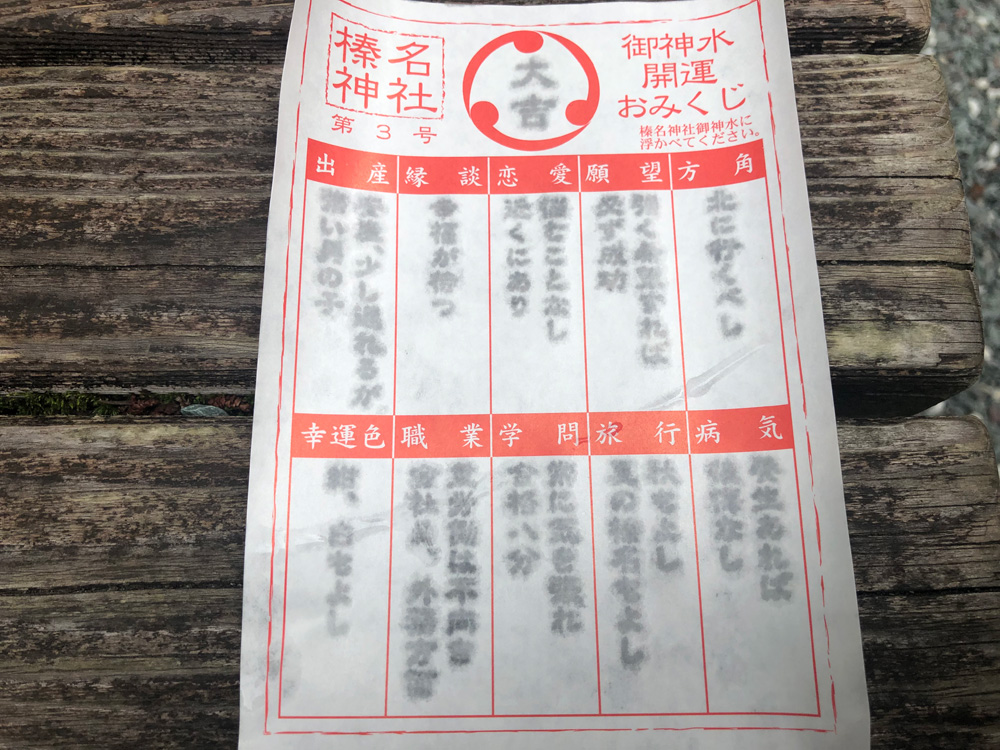 榛名
神社
第3号
大吉
御神水
開運
おみくじ
榛名神社御神水に
浮かべてください。
方角
北に行くべし
願望
強く
必ず成功
恋愛
ことなし
近くにあり
縁談
幸福が待つ
出産
安産、少し遅れるが
い男の子
病気
なし
旅行
もよし
の榛名もよし
学問
常に気を張れ
合格八分
職業
重労働は不向き
会社員、外務
幸運色
白もよし